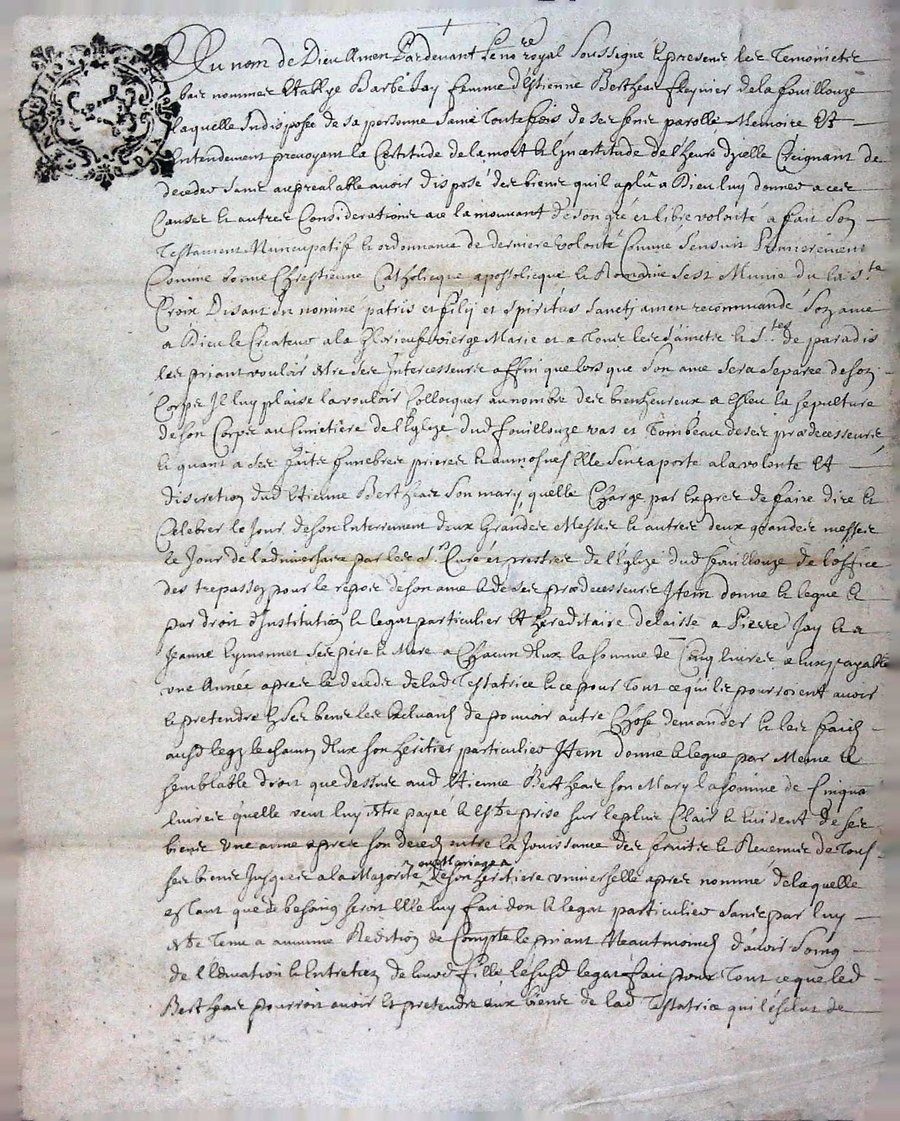 Au nom de Dieu Amen Pardevant le no.re royal Soussigné et presens les Temoins
bas nommes Barbe Jay femme d'Estienne Bertheas de la fouillouze
laquelle Indisposée de sa personne Saine Toutefois de ses sens parolle Memoire Et
Entendement prevoyant la Certitude de la mort et l'Incertitude de l'heure d'icelle Creignant de
deceder sans au prealable avoir disposé des biens quil a plû a Dieu luy donner a ces
Causes et autres Considerations a ce la mouvant de son gré et libre volonté a fait Son
Testament Nuncupatif et ordonnance de derniere volonté Comme s'ensuit Premierement
Comme bonne Chrestienne Catholicque apostolicque et Romaine s'est Munie du la s.te
Croix Disant In nomine patris et filij et spiritus sancti amen recommandé Son ame
a Dieu le Createur a la glorieuse vierge Marie et a Tous les saincts et s.tes de paradis
les priant vouloir estre ses Intercesseurs affin que lors que Son ame sera separée de son
Corps Il luy plaise la vouloir Collocquer au nombre des bienheureux a Esleu la sepulture
de son Corps au Cimetière de l'Eglize dud fouillouze vas et Tombeau de ses predecesseurs
et quant a ses frits funebres prieres et aumosnes Elle s'en raporte a la volonté Et
discretion dud Etienne Bertheas Son mary quelle Charge par Exprès de faire dire et
Celebrer le Jour de son Enterrement deux Grandes Messes et autres deux grandes messes
le Jour de l'adniversaire par les s.rs Curé et prestres de l'Eglize dud fouillouze de l'office
des trepassez pour le repos de son ame et de ses predecesseurs Item donne et legue et
par droit d'Institution et legat particulier Et hereditaire delaisse a Pierre Jay et a
Jeanne Eymonnet ses père et Mere a Chacun d'Eux la somme de Cinq livres a Eux payable
une Année apres le decedz de lad Testatrice et ce pour Tout ce qui les pourroient avoir
et pretendre Es ses biens les Excluant de pouvoir autre Chose demander et les faict
aud legz le chacun d'Eux son heritier particulier Item donne et legue par Meme et
semblable droit que dessus aud Etienne Bertheas son Mary la somme de Cinqua
livres quelle veut luy estre payée et Estre prise sur le plus Clair et Evident de ses
biens une anné apres son deced outre la Jouissance des fruits et Revenus de Tous
ses biens Jusques a la Majorité ou Mariage de son heritiere universelle apres nommé de laquelle
estant que de besoing seroit Elle luy fait don et legat particulier sans par luy
estre Tenu a aucune Redition de Compte le priant Neautmoins d'avoir Soing
de l'Education et Entretien de lad fille le susd legat fait pour Tout ce que led
Bertheas pourroit avoir Et pretendre aux biens de lad Testatrice qui l'exclut de